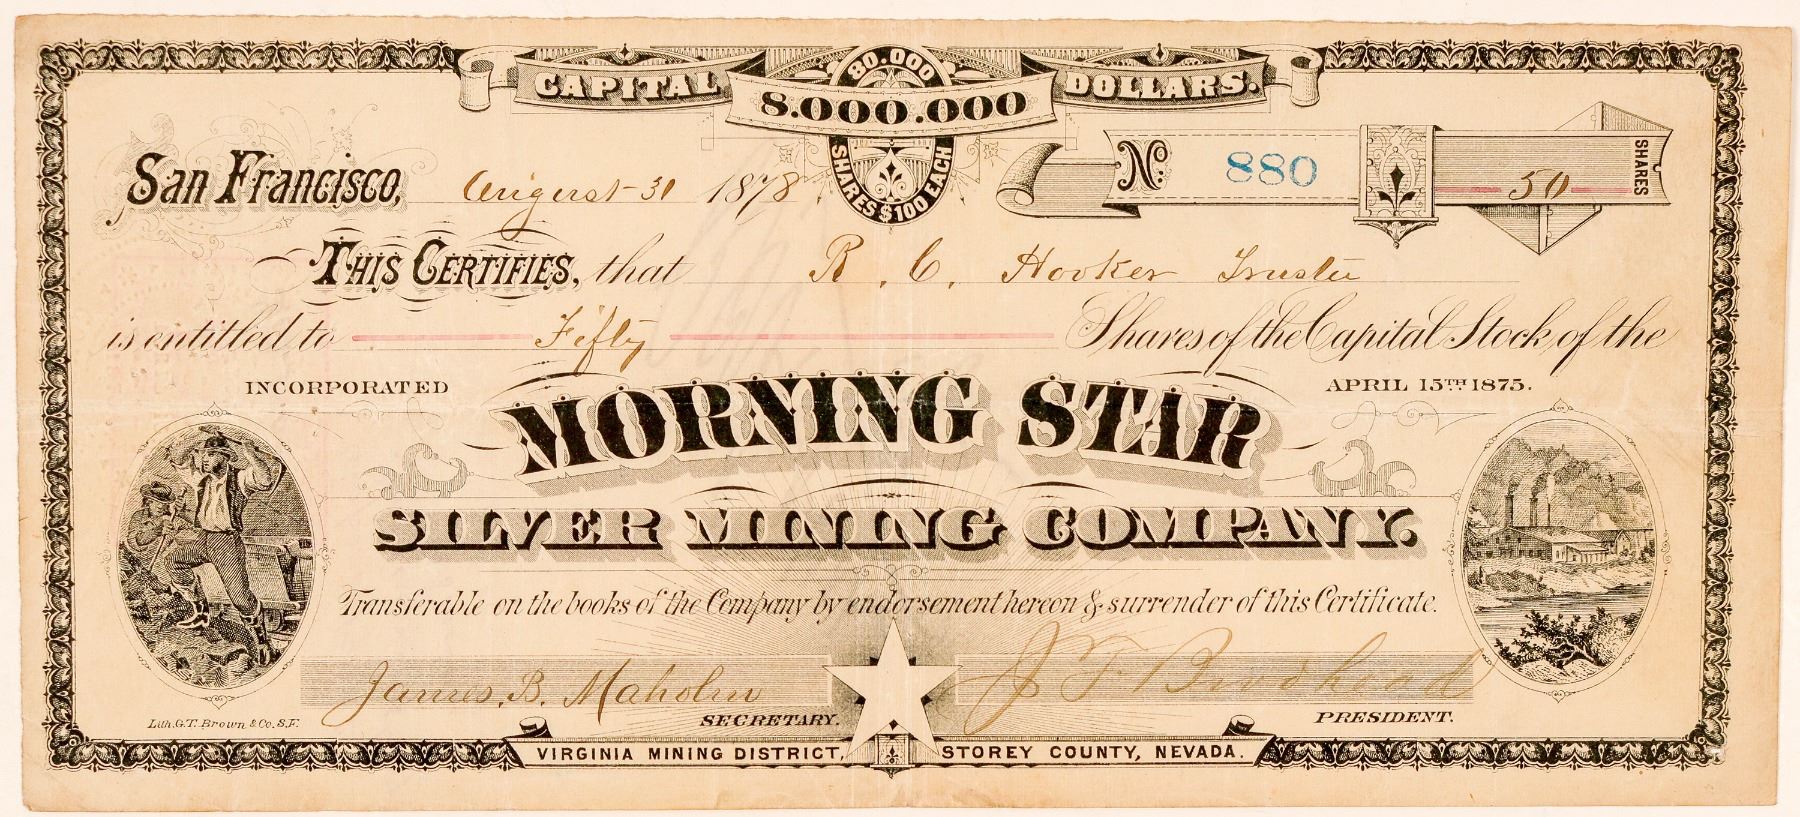 CAPITAL 8.000.000 DOLLARS.
80.000
SHARES $100 EACH
No. 880 50 SHARES
San Francisco, August 31 1878
This Certifies, that R. C. Hooker Trustee
is entitled to Fifty Shares of the Capital Stock of the
INCORPORATED APRIL 15TH 1875.
MORNING STAR
SILVER MINING COMPANY.
Transferable on the books of the Company by endorsement hereon & surrender of this Certificate.
James. B. Maholm J T Brodhead
SECRETARY. PRESIDENT.
Lith. G.T. Brown & Co. S.F.
VIRGINIA MINING DISTRICT, STOREY COUNTY, NEVADA.